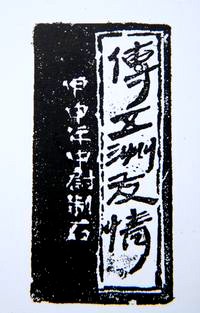 傳亞洲友情
甲申年中尉制石